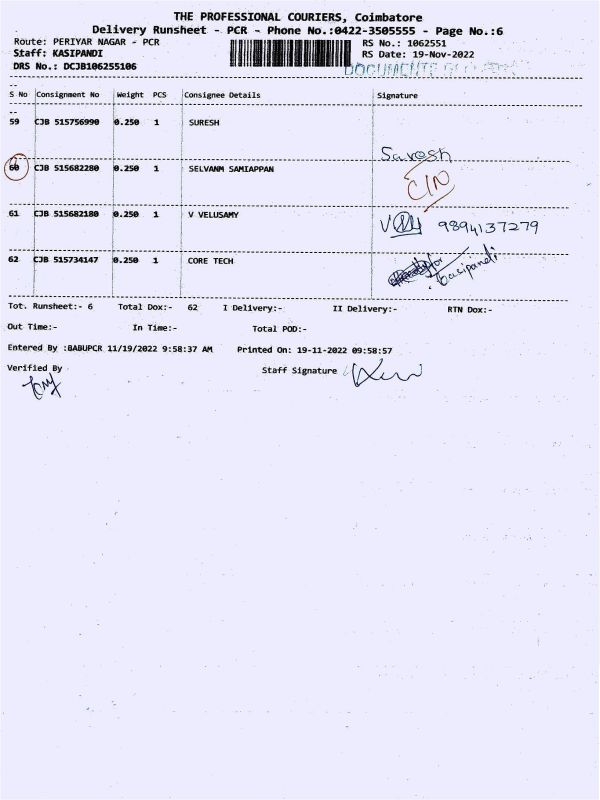 THE PROFESSIONAL COURIERS, Coimbatore
Delivery Runsheet - PCR - Phone No.:0422-3505555 - Page No.:6
Route: PERIYAR NAGAR - PCR
RS No.: 1062551
Staff: KASIPANDI
RS Date: 19-Nov-2022
DRS No.: DCJB106255106
DOCUMENTS
S No Consignment No Weight PCS Consignee Details Signature
59 CJB 515756990 0.250 1 SURESH
Suresh
60 CJB 515682280 0.250 1 SELVANM SAMIAPPAN
C/N
61 CJB 515682180 0.250 1 V VELUSAMY
9894137279
62 CJB 515734147 0.250 1 CORE TECH
for
Tot. Runsheet:- 6 Total Dox:- 62 I Delivery:- II Delivery:- RTN Dox:-
Out Time:- In Time:- Total POD:-
Entered By :BABUPCR 11/19/2022 9:58:37 AM Printed On: 19-11-2022 09:58:57
Verified By Staff Signature